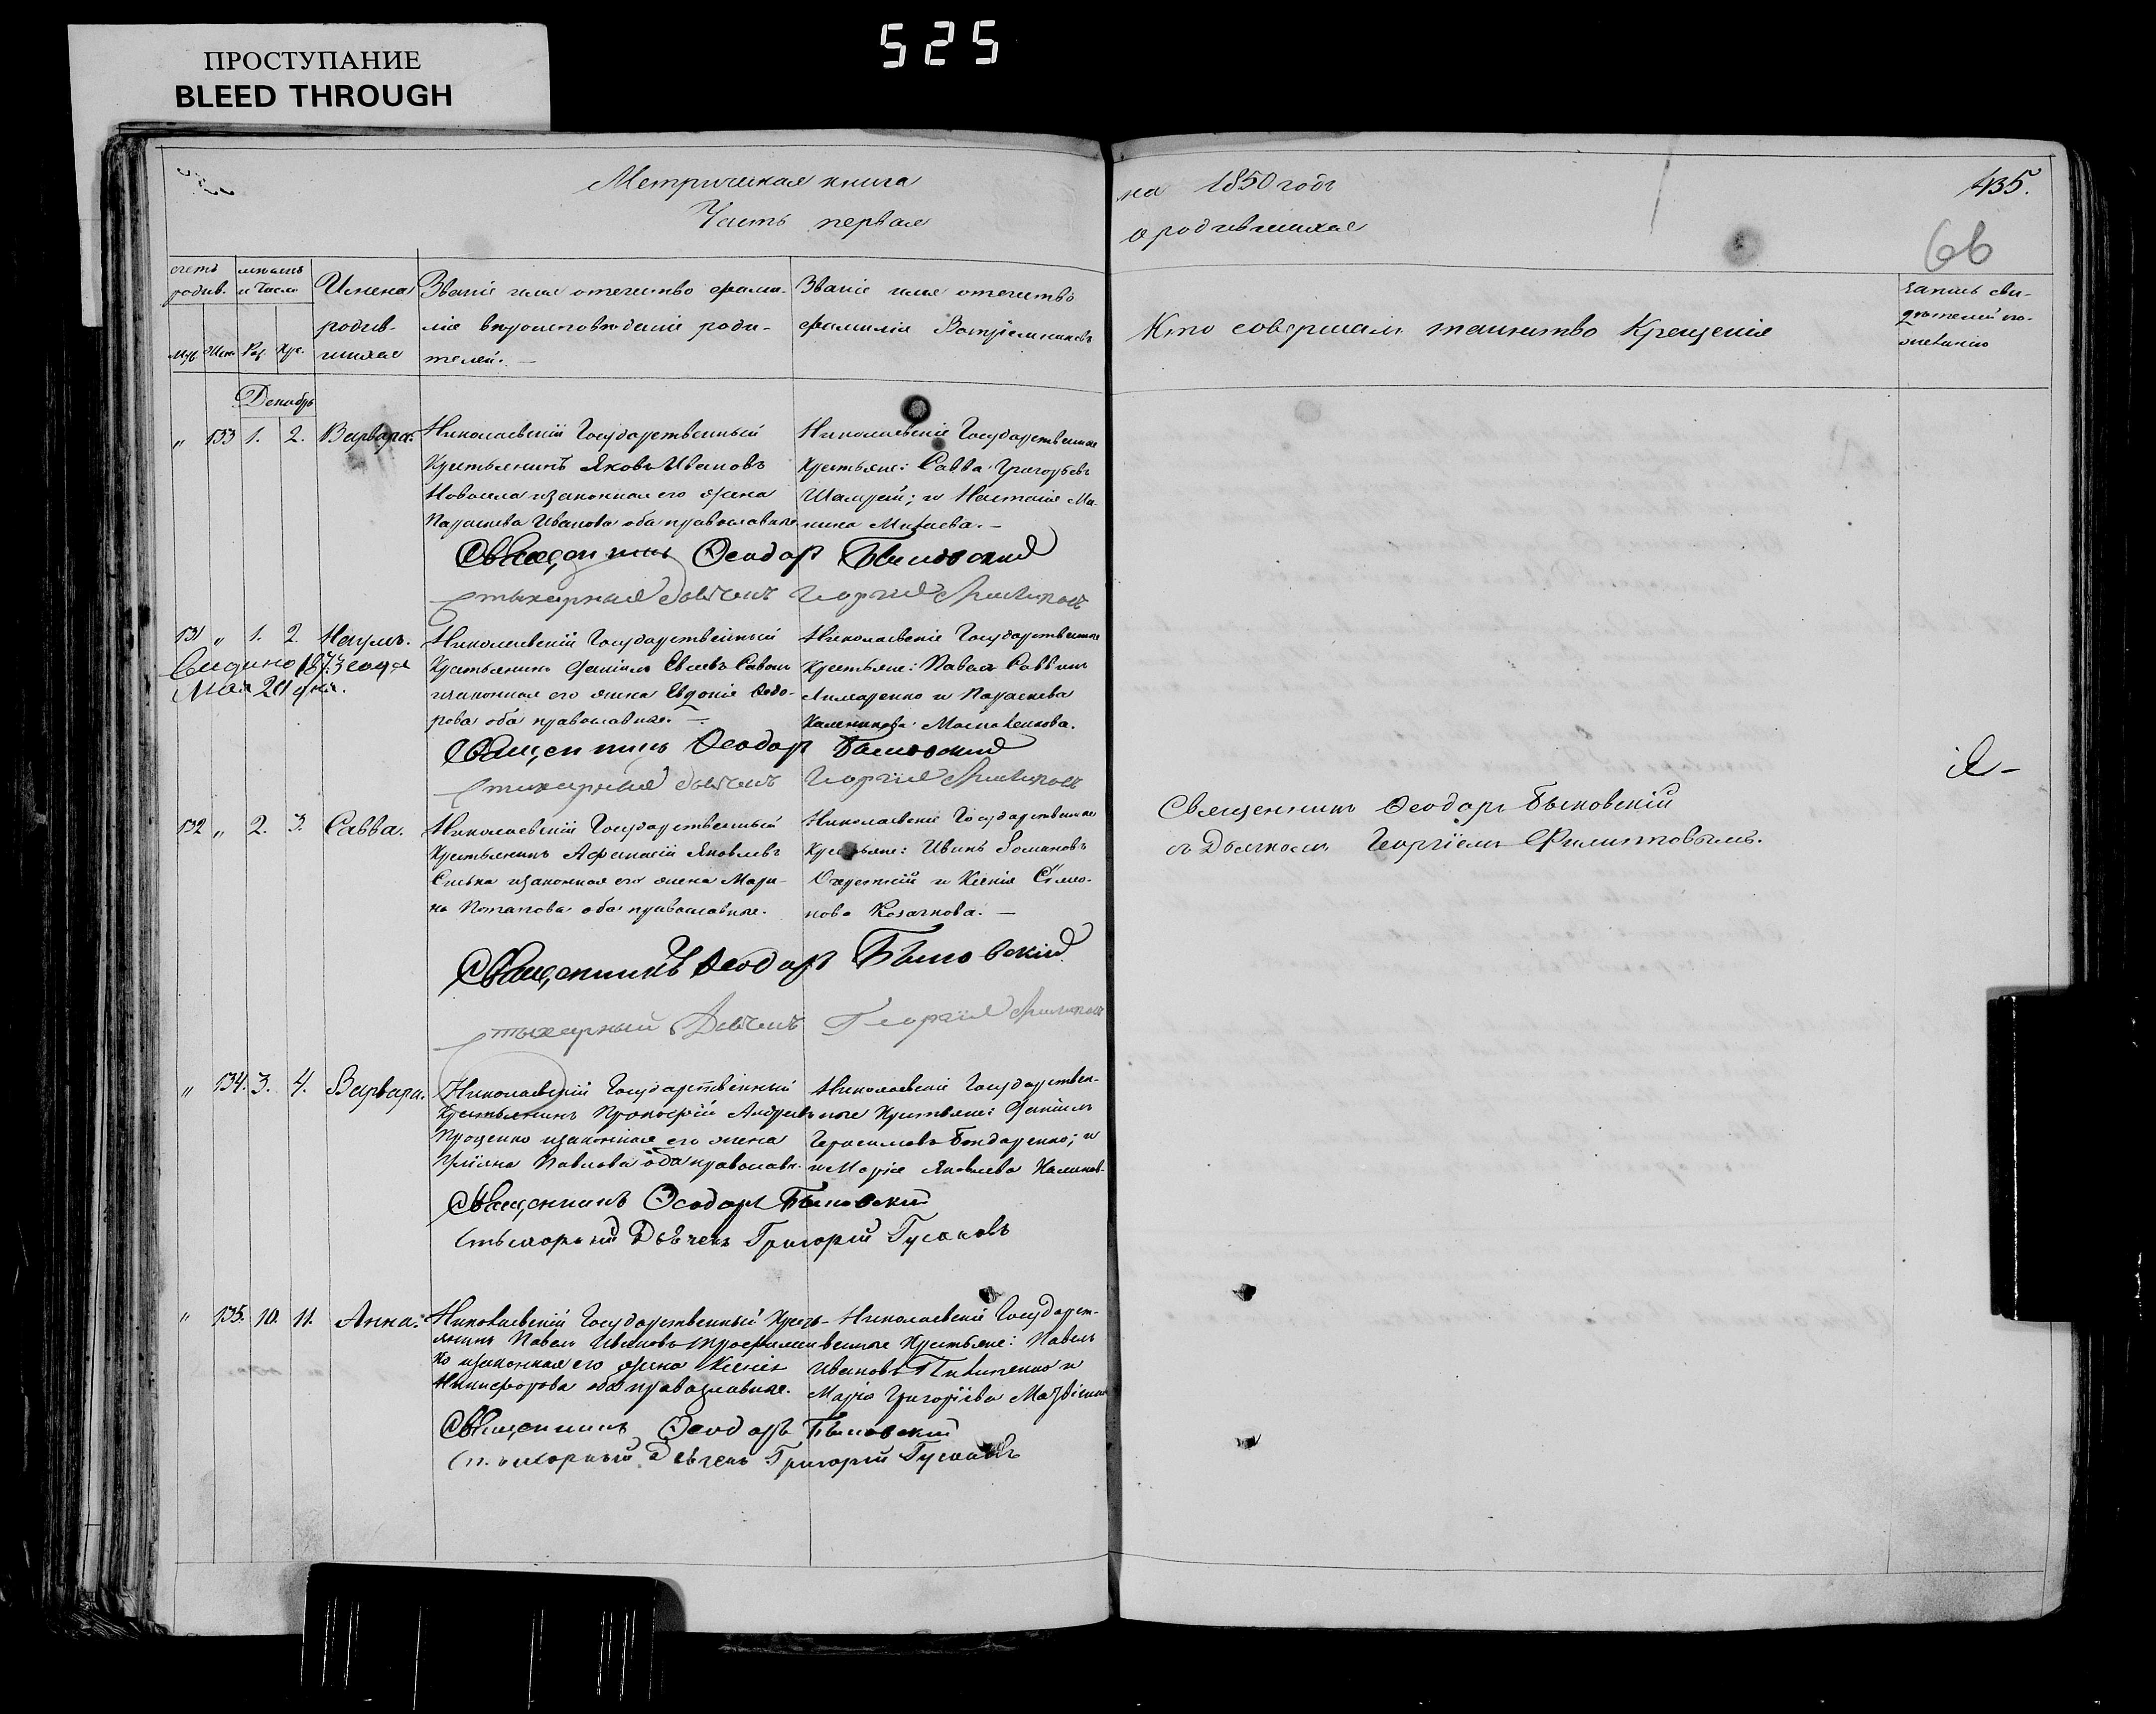 525
ПРОСТУПАНИЕ
BLEED THROUGH
Метрическая книга
Часть первая
на 1850 годъ
о родившихся
435.
66
счетъ родив.
мѣсяцъ и число
Имена родив-
шихся
Званіе имя отечество фами-
лія вѣроисповѣданіе роди-
телей. —
Званіе имя отечество
фамилія Воспріемниковъ
Кто совершалъ таинство Крещенія
запись сви-
дѣтелей по
муж. жен. Род. Кре.
Декабрь
„ 133 1. 2. Варвара.
Николаевскій Государственный
Крестьянинъ Яковъ Ивановъ
и законная его жена
Параскева Иванова оба православные
Николаевскіе Государственные
Крестьяне: Савва Григорьевъ
Шамрей; и Настасія
Священникъ Ѳеодоръ Быковскій
Стихарный Дьячекъ Георгій Филиповъ
131 „ 1. 2. Наумъ.
Видино 1873 года
Мая 20 дня.
Николаевскій Государственный
Крестьянинъ Даніилъ
и законная его жена Евдокія Ѳедо-
рова оба православные. —
Николаевскіе Государственные
Крестьяне: Павелъ Саввинъ
и Параскева
Священникъ Ѳеодоръ Быковскій
Стихарный Дьячекъ Георгій Филиповъ
132 „ 2. 3. Савва.
Николаевскій Государственный
Крестьянинъ Афанасій Яковлевъ
и законная его жена Мари-
на Потапова оба православные.
Николаевскіе Государственные
Крестьяне: Иванъ Романовъ
и Ксенія Симо-
нова Козачкова. —
Священникъ Ѳеодоръ Быковскій
Стихарный Дьячекъ Георгій Филиповъ
Священникъ Ѳеодоръ Быковскій
съ Дьячкомъ Георгіемъ Филипповымъ.
„ 134. 3. 4. Варвара.
Николаевскій Государственный
Крестьянинъ Прокофій Андреевъ
Проценко и законная его жена
Павлова оба православн.
Николаевскіе Государствен-
ные Крестьяне: Даніилъ
Герасимовъ Бондаренко; и
Марія Яковлева
Священникъ Ѳеодоръ Быковскій
Стихарный Дьячекъ Григорій Гусаковъ
„ 135. 10. 11. Анна.
Николаевскій Государственный Кресть-
янинъ Павелъ Ивановъ Трофимен
ко и законная его жена Ксенія
Никифорова оба православные.
Николаевскіе Государст-
венные Крестьяне: Павелъ
Ивановъ и
Марія Григоріева
Священникъ Ѳеодоръ Быковскій
Стихарный Дьячекъ Григорій Гусаковъ